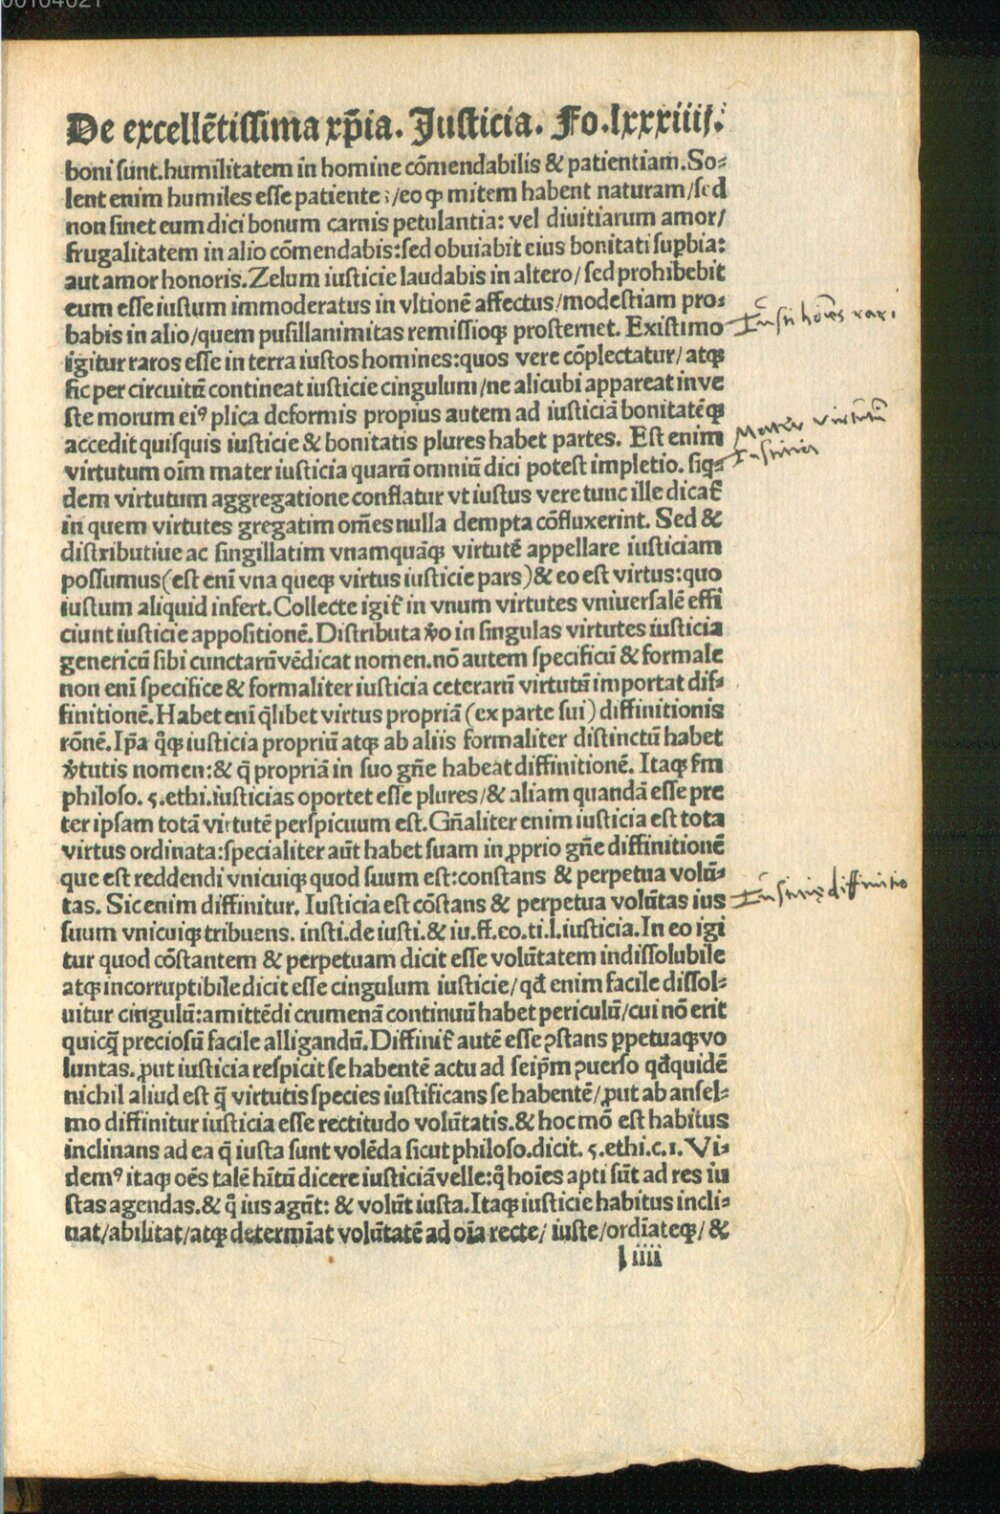 00104021
De excellētissima xp̄ia. Justicia. Fo.lxxxiiij.
boni sunt.humilitatem in homine cōmendabilis & patientiam.So⸗
lent enim humiles esse patientes/eo qꝫ mitem habent naturam/sed
non sinet eum dici bonum carnis petulantia: vel diuitiarum amor/
frugalitatem in alio cōmendabis:sed obuiabit eius bonitati suꝑbia:
aut amor honoris.Zelum iusticie laudabis in altero/ sed prohibebit
eum esse iustum immoderatus in vltionē affectus/modestiam pro⸗
babis in alio/quem pusillanimitas remissioqꝫ prosternet. Existimo
igitur raros esse in terra iustos homines:quos vere cōplectatur/ atqꝫ
sic per circuitū contineat iusticie cingulum/ne alicubi appareat in ve
ste morum eiꝰ plica deformis propius autem ad iusticiā bonitatēqꝫ
accedit quisquis iusticie & bonitatis plures habet partes. Est enim
virtutum oīm mater iusticia quarū omniū dici potest impletio. siqꝫ⸗
dem virtutum aggregatione conflatur vt iustus vere tunc ille dicat᷑
in quem virtutes gregatim om̄es nulla dempta cōfluxerint. Sed &
distributiue ac singillatim vnamquāqꝫ virtutē appellare iusticiam
possumus(est enī vna queqꝫ virtus iusticie pars)& eo est virtus:quo
iustum aliquid infert.Collecte igit᷑ in vnum virtutes vniuersalē effi
ciunt iusticie appositionē.Distributa v̄o in singulas virtutes iusticia
genericū sibi cunctarū vēdicat nomen.nō autem specificū & formale
non enī specifice & formaliter iusticia ceterarū virtutū importat dif⸗
finitionē.Habet enī q̄libet virtus propriā (ex parte sui) diffinitionis
rōnē.Ip̄a q̊qꝫ iusticia propriū atqꝫ ab aliis formaliter distinctū habet
v̄tutis nomen:& q̄ propriā in suo gn̄e habeat diffinitionē. Itaqꝫ fm
philoso. 5.ethi.iusticias oportet esse plures/& aliam quandā esse pre
ter ipsam totā virtutē perspicuum est.Gn̄aliter enim iusticia est tota
virtus ordinata:specialiter aūt habet suam in ꝓprio gn̄e diffinitionē
que est reddendi vnicuiqꝫ quod suum est:constans & perpetua volū⸗
tas. Sic enim diffinitur. Iusticia est cōstans & perpetua volūtas ius
suum vnicuiqꝫ tribuens. insti.de iusti.& iu.ff.eo.ti.l.iusticia.In eo igi
tur quod cōstantem & perpetuam dicit esse volūtatem indissolubile
atqꝫ incorruptibile dicit esse cingulum iusticie/ qd̄ enim facile dissol⸗
uitur cingulū:amittēdi crumenā continuū habet periculū/cui nō erit
quicq̄ preciosū facile alligandū.Diffinit᷑ autē esse ꝯstans ꝑpetuaqꝫ vo
luntas.ꝓut iusticia respicit se habentē actu ad seip̄m ꝯuerso qd̄quidē
nichil aliud est q̄ virtutis species iustificans se habentē/ꝓut ab ansel⸗
mo diffinitur iusticia esse rectitudo volūtatis.& hoc mō est habitus
inclinans ad ea q̄ iusta sunt volēda sicut philoso.dicit. 5.ethi.c.1. Vi⸗
demꝰ itaqꝫ oēs talē hītū dicere iusticiā velle:q̊ hoīes apti sūt ad res iu
stas agendas.& q̊ ius agūt: & volūt iusta.Itaqꝫ iusticie habitus incli⸗
nat/abilitat/atqꝫ determīat volūtatē ad oīa recte/ iuste/ordīateqꝫ/ &
l iiii
Iusti hoīes rari
Mater virtutū
Iusticia
Iusticię diffinitio